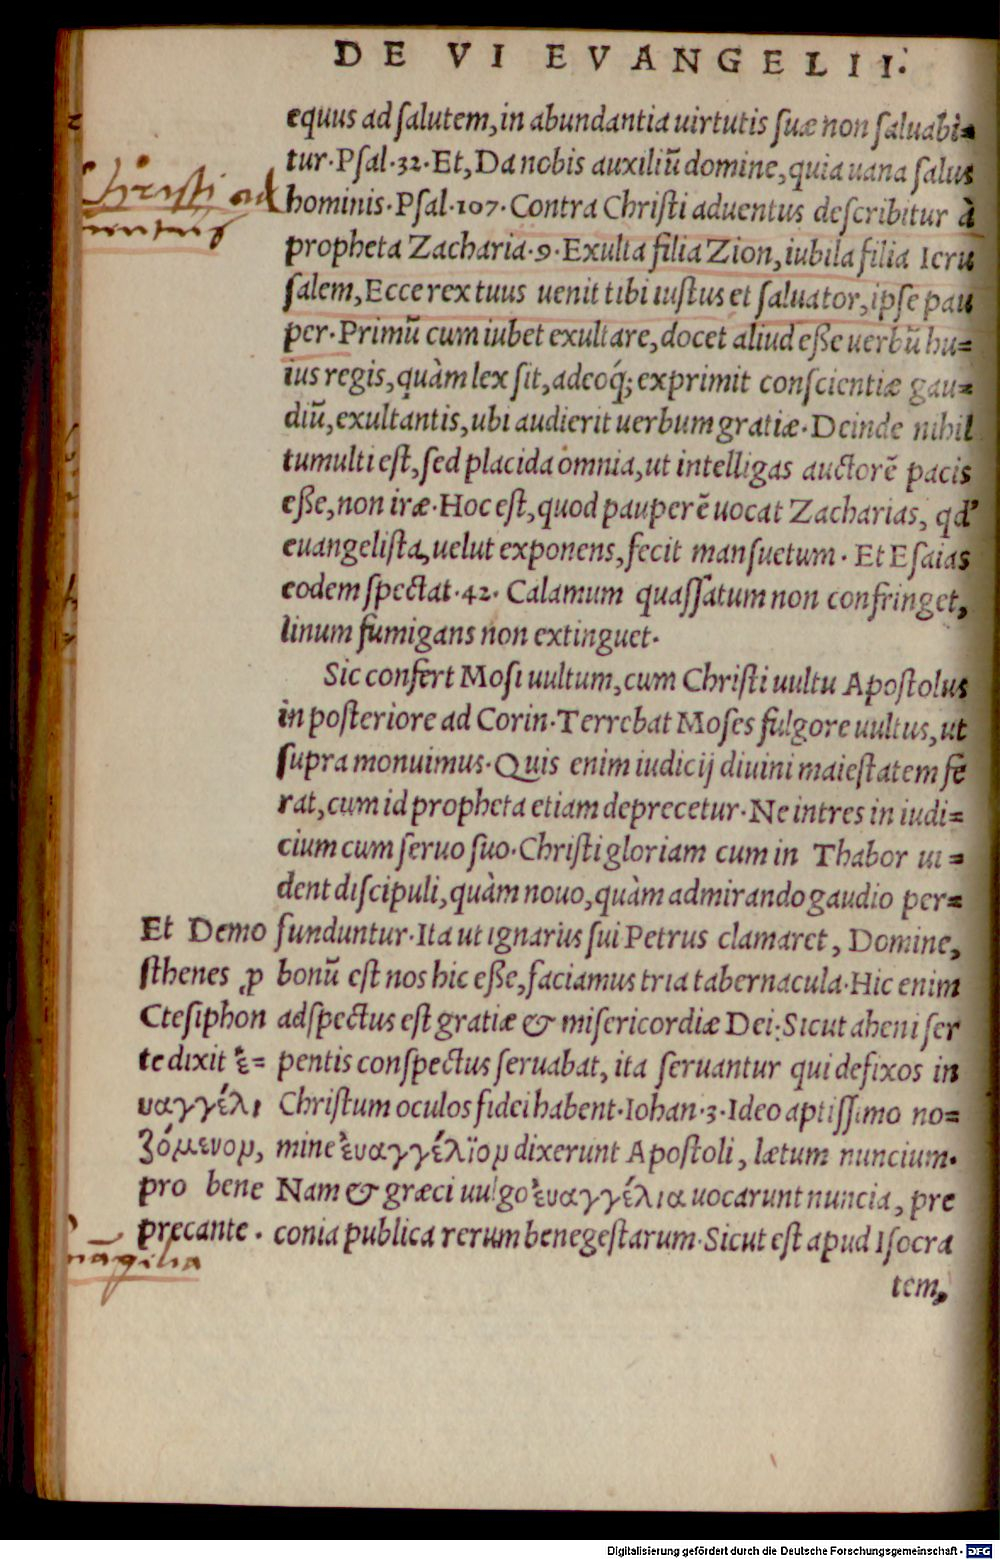 DE VI EVANGELII.
equus ad ſalutem, in abundantia uirtutis ſuæ non ſaluabi-
tur. Pſal. 32. Et, Da nobis auxiliū domine, quia uana ſalus
hominis. Pſal. 107. Contra Chriſti aduentus deſcribitur à
propheta Zacharia. 9. Exulta filia Zion, iubila filia Ieru
ſalem, Ecce rex tuus uenit tibi iuſtus et ſaluator, ipſe pau
per. Primū cum iubet exultare, docet aliud eſſe uerbū hu=
ius regis, quàm lex ſit, adeoq́; exprimit conſcientiæ gau=
diū, exultantis, ubi audierit uerbum gratiæ. Deinde nihil
tumulti eſt, ſed placida omnia, ut intelligas auctorē pacis
eſſe, non iræ. Hoc eſt, quod pauperē uocat Zacharias, qd'
euangeliſta, uelut exponens, fecit manſuetum. Et Eſaias
eodem ſpectat. 42. Calamum quaſſatum non confringet,
linum fumigans non extinguet.
Sic confert Moſi uultum, cum Chriſti uultu Apoſtolus
in poſteriore ad Corin. Terrebat Moſes fulgore uultus, ut
ſupra monuimus. Quis enim iudicij diuini maieſtatem fe
rat, cum id propheta etiam deprecetur. Ne intres in iudi=
cium cum ſeruo ſuo. Chriſti gloriam cum in Thabor ui =
dent diſcipuli, quàm nouo, quàm admirando gaudio per=
funduntur. Ita ut ignarius ſui Petrus clamaret, Domine,
bonū eſt nos hic eſſe, faciamus tria tabernacula. Hic enim
adſpectus eſt gratiæ & miſericordiæ Dei: Sicut aheni ſer
pentis conſpectus ſeruabat, ita ſeruantur qui defixos in
Chriſtum oculos fidei habent. Iohan. 3. Ideo aptiſſimo no=
mine ἐυαγγέλϊομ dixerunt Apoſtoli, lætum nuncium.
Nam & græci uulgo ἐυαγγέλια uocarunt nuncia, pre
conia publica rerum bene geſtarum. Sicut eſt apud Iſocra
tem,
Chriſti ad
uentus
Et Demo
ſthenes ꝓ
Cteſiphon
te dixit ἐ=
υαγγέλι
ζόμενομ,
pro bene
precante.